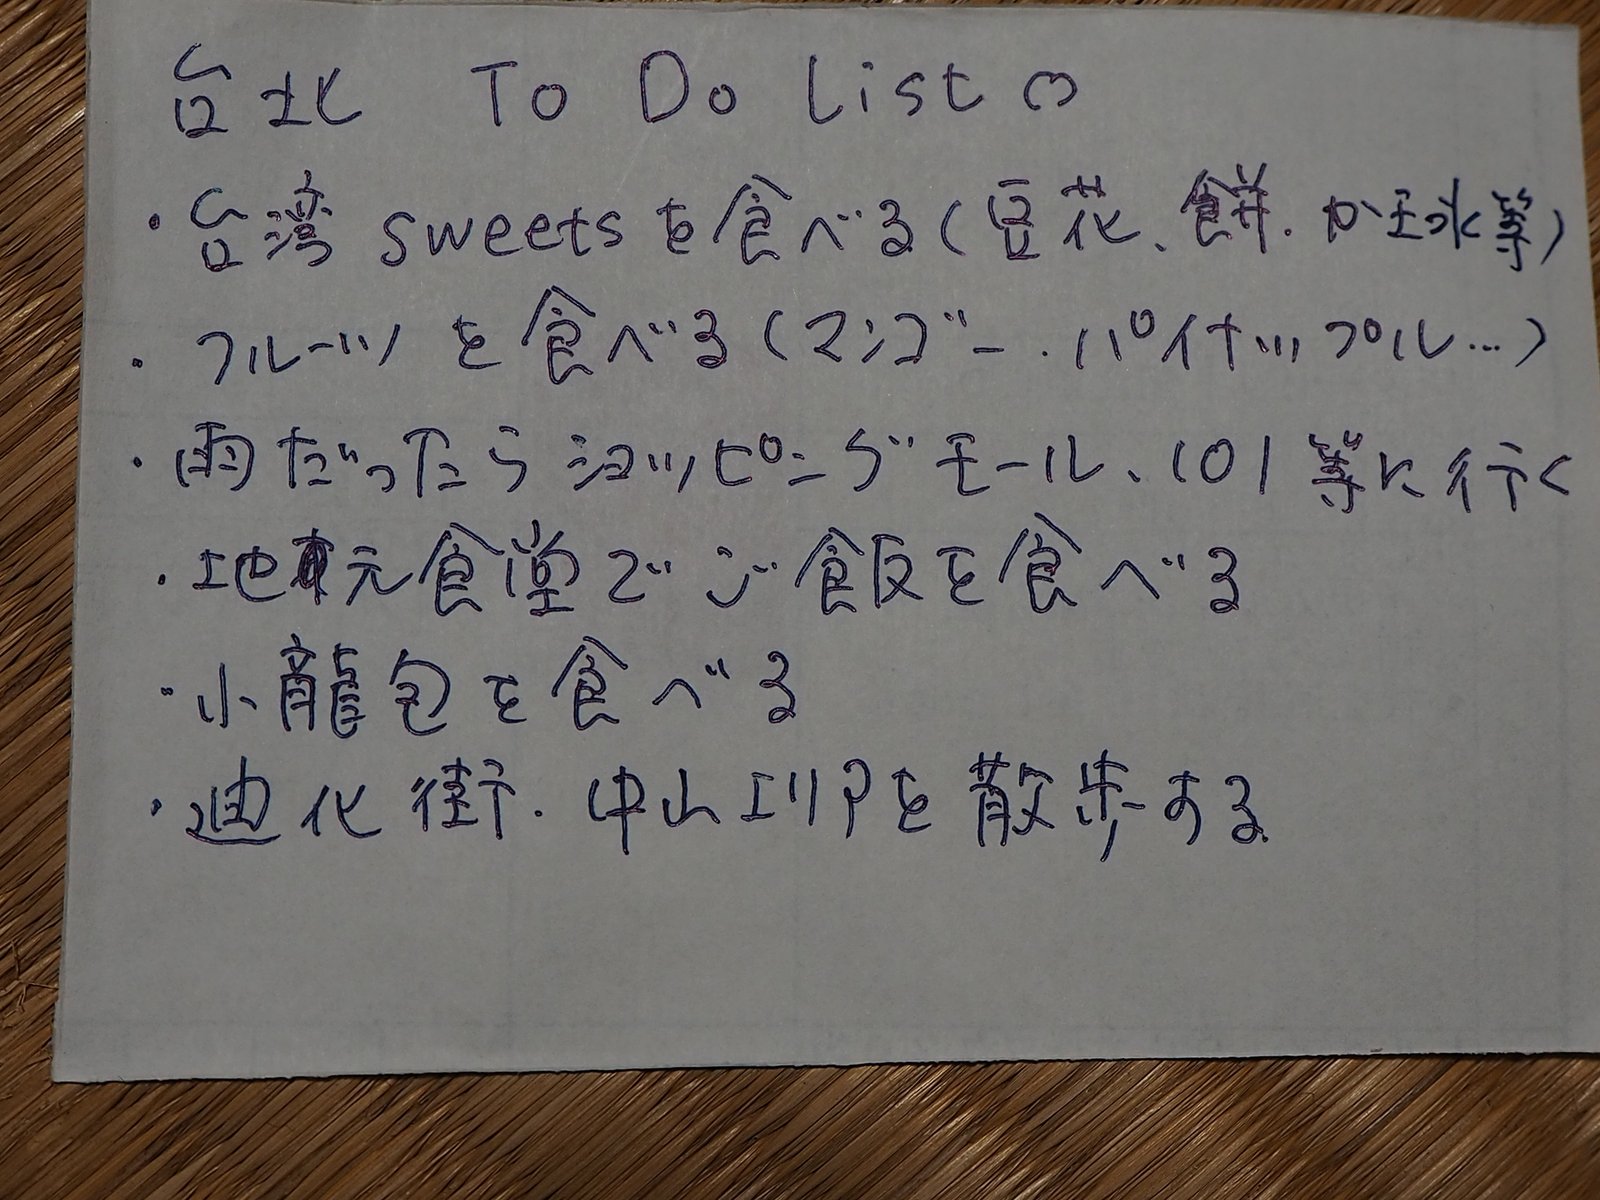 台北 To Do List ♡
・台湾 sweetsを食べる(豆花、餅、かき氷等)
・フルーツを食べる(マンゴー、パイナップル…)
・雨だったらショッピングモール、101等に行く
・地元食堂でご飯を食べる
・小龍包を食べる
・迪化街、中山エリアを散歩する